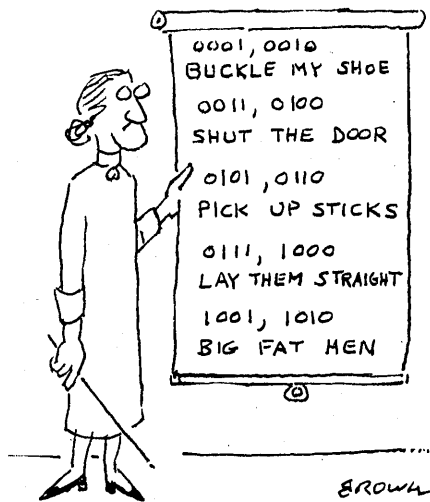 0001, 0010
BUCKLE MY SHOE
0011, 0100
SHUT THE DOOR
0101, 0110
PICK UP STICKS
0111, 1000
LAY THEM STRAIGHT
1001, 1010
BIG FAT MEN
BROWN